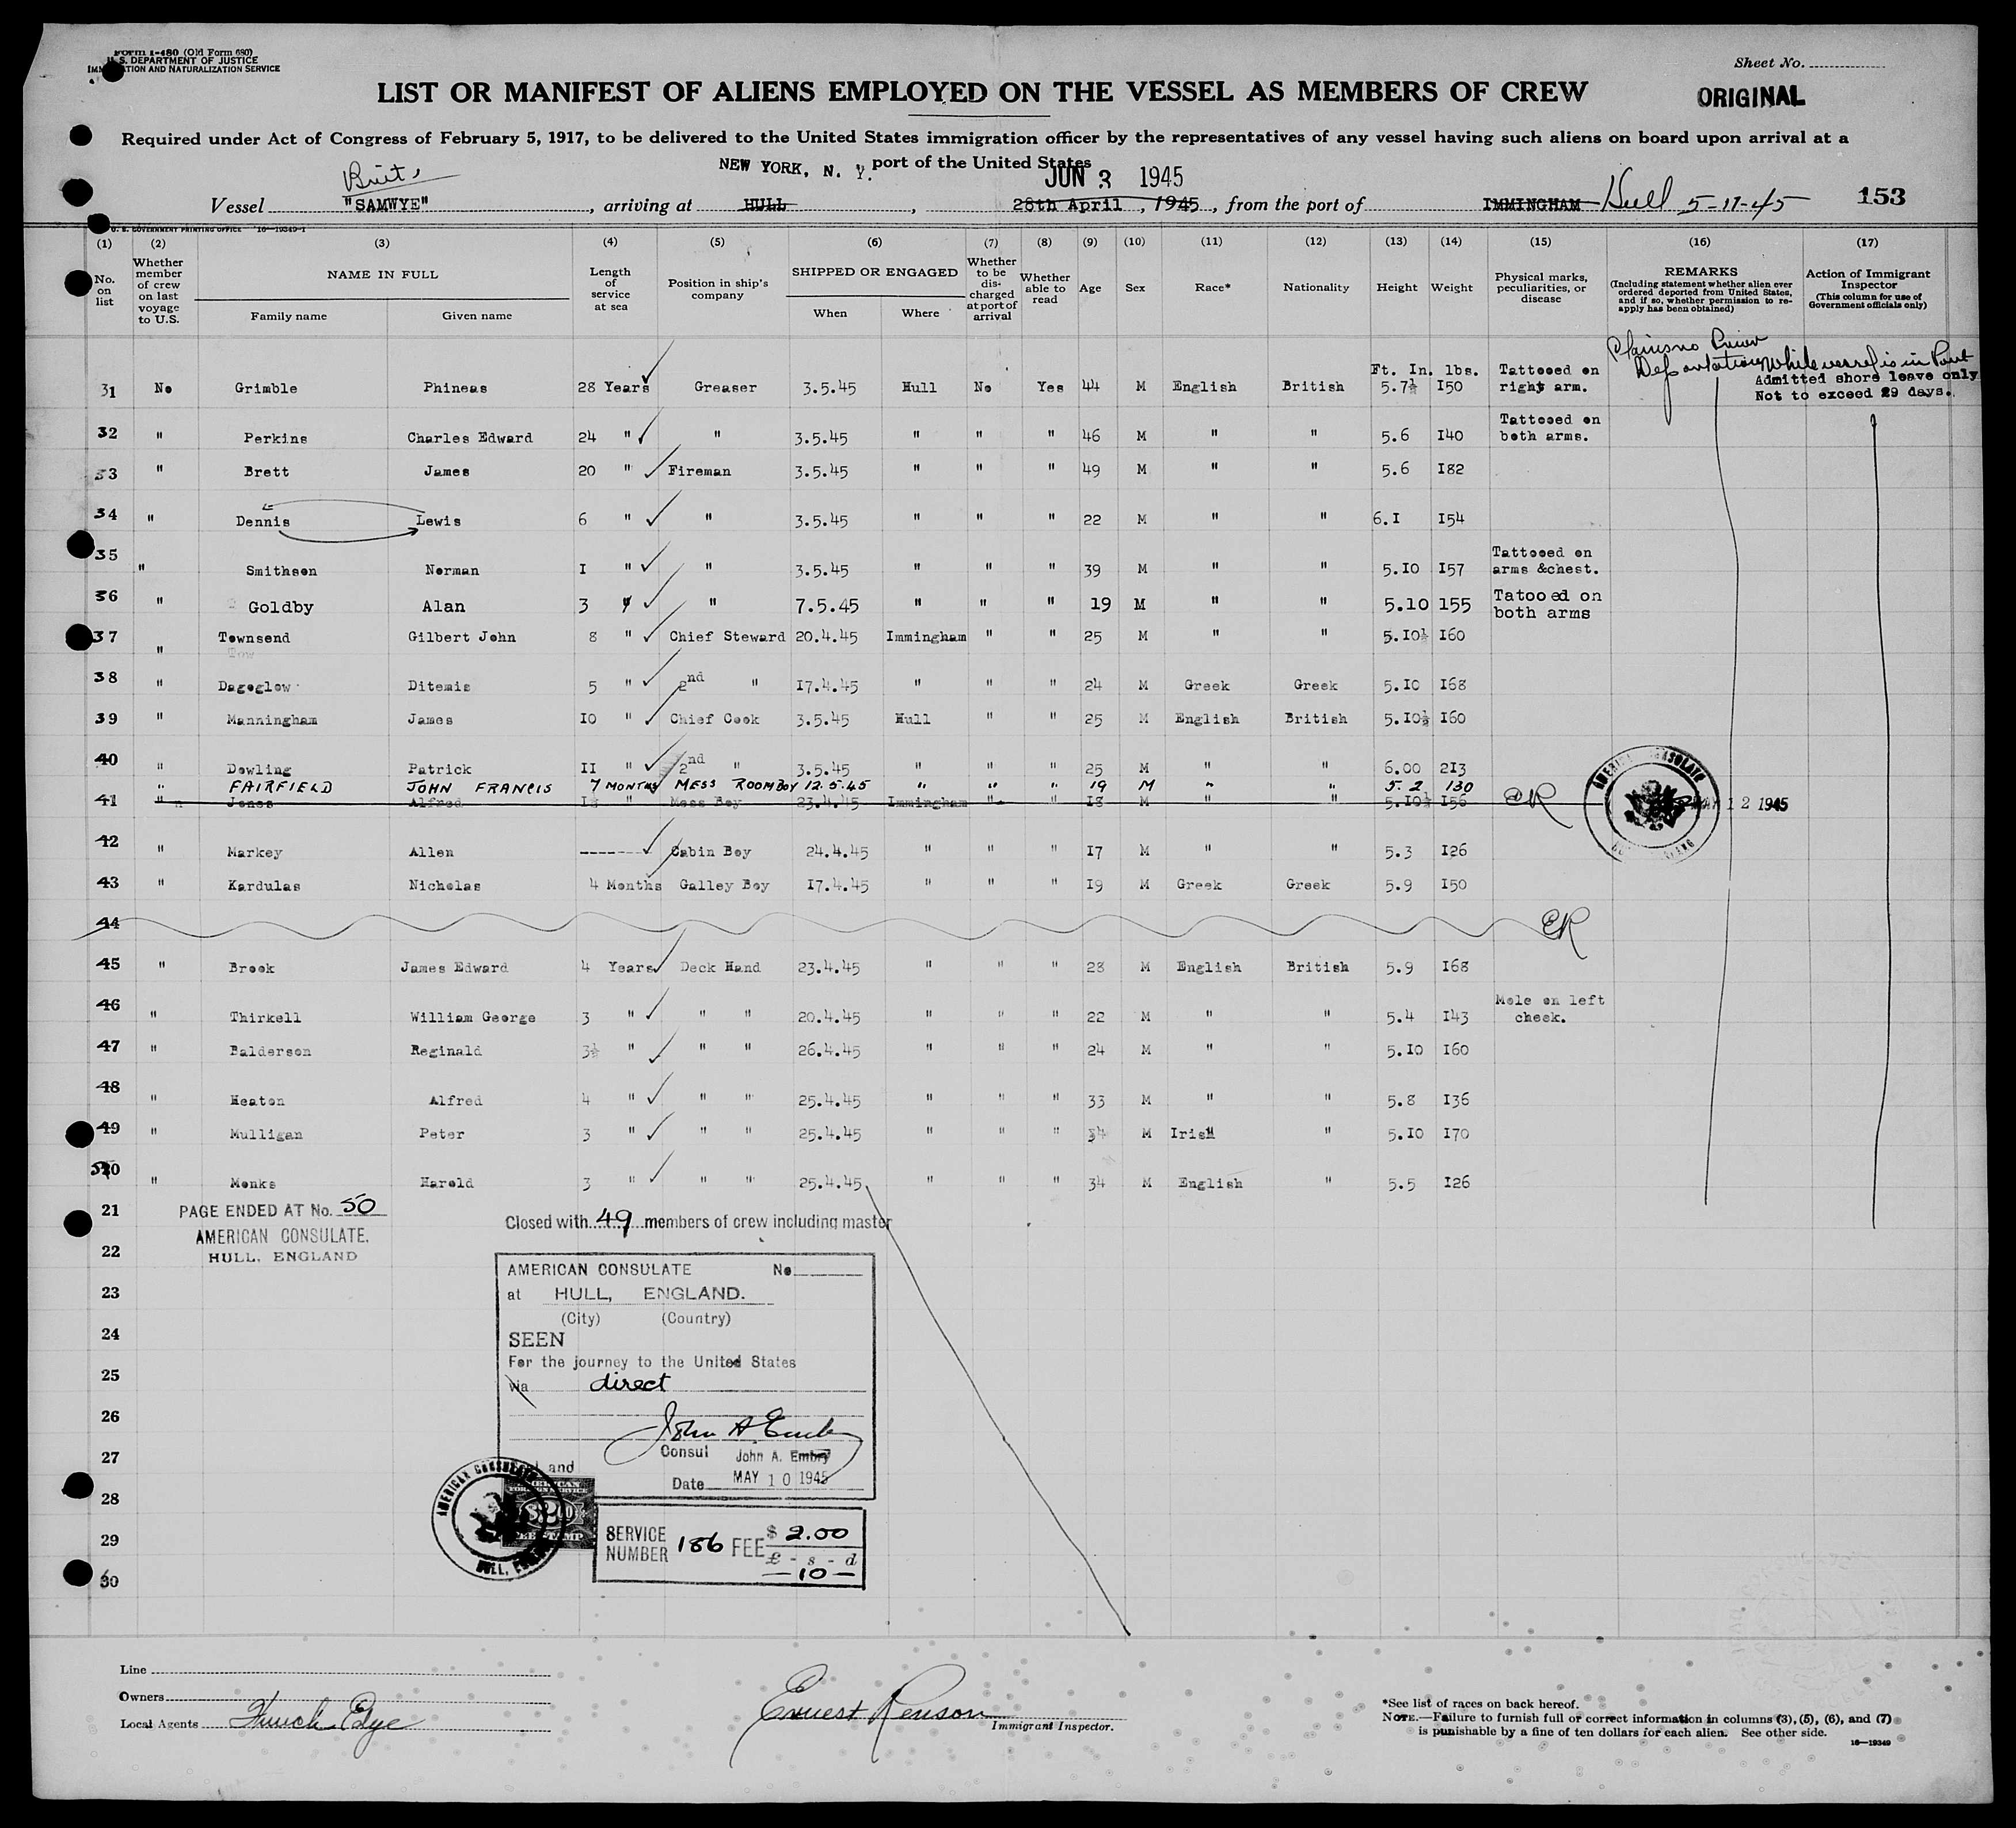 Form I-480 (Old Form 680)
U. S. DEPARTMENT OF JUSTICE
IMMIGRATION AND NATURALIZATION SERVICE
Sheet No.
LIST OR MANIFEST OF ALIENS EMPLOYED ON THE VESSEL AS MEMBERS OF CREW
ORIGINAL
Required under Act of Congress of February 5, 1917, to be delivered to the United States immigration officer by the representatives of any vessel having such aliens on board upon arrival at a
port of the United States
NEW YORK, N. Y. JUN 3 1945
Brit.
Vessel "SAMWYE", arriving at HULL, 28th April, 1945, from the port of IMMINGHAM Hull 5-17-45 153
U. S. GOVERNMENT PRINTING OFFICE 16-19349-1
(1) (2) (3) (4) (5) (6) (7) (8) (9) (10) (11) (12) (13) (14) (15) (16) (17)
No. on list
Whether member of crew on last voyage to U.S.
NAME IN FULL
Family name Given name
Length of service at sea
Position in ship's company
SHIPPED OR ENGAGED
When Where
Whether to be discharged at port of arrival
Whether able to read
Age Sex Race* Nationality Height Weight
Physical marks, peculiarities, or disease
REMARKS
(Including statement whether alien ever ordered deported from United States, and if so, whether permission to reapply has been obtained)
Action of Immigrant Inspector
(This column for use of Government officials only)
Claims no Prior
Deportation while vessel is in Port
Admitted shore leave only
Not to exceed 29 days.
Ft. In. lbs.
31 No Grimble Phineas 28 Years Greaser 3.5.45 Hull No Yes 44 M English British 5.7½ I50 Tattooed on right arm.
32 " Perkins Charles Edward 24 " " 3.5.45 " " " 46 M " " 5.6 I40 Tattooed on both arms.
33 " Brett James 20 " Fireman 3.5.45 " " " 49 M " " 5.6 I82
34 " Dennis Lewis 6 " " 3.5.45 " " " 22 M " " 6.I I54
35 " Smithson Norman I " " 3.5.45 " " " 39 M " " 5.I0 I57 Tattooed on arms &chest.
36 " Goldby Alan 3 " " 7.5.45 " " " 19 M " " 5.10 155 Tatooed on both arms
37 " Townsend Gilbert John 8 " Chief Steward 20.4.45 Immingham " " 25 M " " 5.I0½ I60
Tow
38 " Dageglow Ditemis 5 " 2nd " I7.4.45 " " " 24 M Greek Greek 5.I0 I68
39 " Manningham James I0 " Chief Cook 3.5.45 Hull " " 25 M English British 5.I0½ I60
40 " Dowling Patrick II " 2nd " 3.5.45 " " " 25 M " " 6.00 2I3
" FAIRFIELD JOHN FRANCIS 7 MONTHS MESS ROOM BOY 12.5.45 " " " 19 M " " 5.2 130
41 " Jones Alfred I8 " Mess Boy 23.4.45 Immingham " " I8 M " " 5.I0½ I56 ER
AMERICAN CONSULATE
MAY 12 1945
42 " Markey Allen ------- Cabin Boy 24.4.45 " " " I7 M " " 5.3 I26
43 " Kardulas Nicholas 4 Months Galley Boy I7.4.45 " " " I9 M Greek Greek 5.9 I50
44 ER
45 " Brook James Edward 4 Years Deck Hand 23.4.45 " " " 28 M English British 5.9 I68
46 " Thirkell William George 3 " " " 20.4.45 " " " 22 M " " 5.4 I43 Mole on left cheek.
47 " Balderson Reginald 3½ " " " 26.4.45 " " " 24 M " " 5.I0 I60
48 " Heaton Alfred 4 " " " 25.4.45 " " " 33 M " " 5.8 I36
49 " Mulligan Peter 3 " " " 25.4.45 " " " 34 M Irish " 5.I0 I70
50 " Monks Harold 3 " " " 25.4.45 " " " 34 M English " 5.5 I26
21 PAGE ENDED AT No. 50
AMERICAN CONSULATE.
HULL, ENGLAND
Closed with 49 members of crew including master
22
23
24
25
26
27
28
29
30
AMERICAN CONSULATE No
at HULL, ENGLAND.
(City) (Country)
SEEN
For the journey to the United States
via direct
John A. Embry
Consul John A. Embry
Date MAY 10 1945
AMERICAN CONSULATE
HULL,
$2.00
FEE STAMP
SERVICE NUMBER 186 FEE $ 2.00
£ - s - d
— 10 —
Line
Owners
Local Agents Funch Edye
Ernest Renson
Immigrant Inspector.
*See list of races on back hereof.
NOTE.—Failure to furnish full or correct information in columns (3), (5), (6), and (7)
is punishable by a fine of ten dollars for each alien. See other side.
16—19349